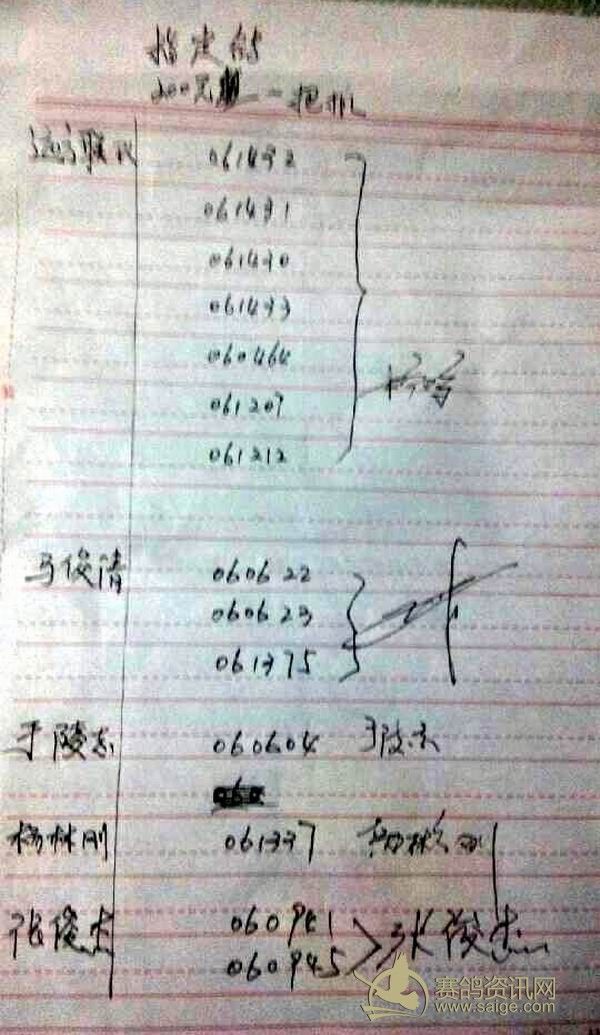 指定鸽
200元 一把抓
061492
061491
061490
061493
060464
061207
061212
马俊清 060622
060623
061375
于陵志 060604 于陵志
杨林刚 061337 杨林刚
张俊杰 060941 张俊杰
060945
赛鸽资讯网
www.saige.com